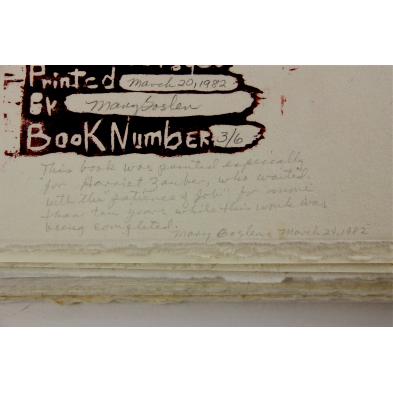 Printed March 20, 1982
By Mary Goslen
Book Number 3/6
This book was printed especially
for Harriet Zauber, who waited,
with the "patience of Job" for more
than ten years while this work was
being completed.
Mary Goslen March 24, 1982